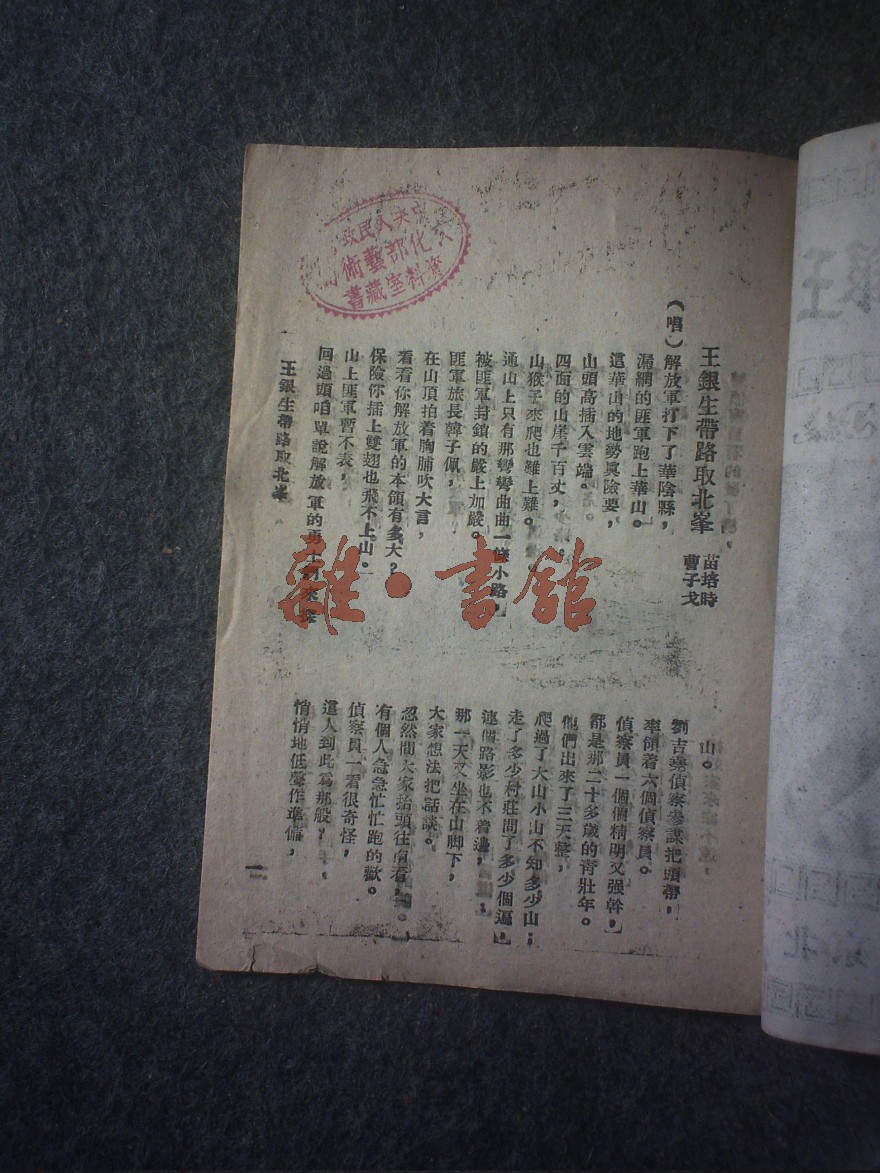 王銀生帶路取北峯
苗培時
曹子戈
（唱）解放軍打下了華陰縣，
漏網的匪軍跑上華山。
這華山的地勢眞險要，
山頭高插入雲端。
四面的山崖千百丈，
山猴子來爬也難上難。
通山上只有那彎彎曲曲一條小路，
被匪軍封鎖的嚴上加嚴。
匪軍旅長韓子佩，
在山頂拍着胸脯吹大言，
看看你解放軍的本領有多大？
保險你插上雙翅也飛不上山。
山上匪軍暫不表，
回過頭咱單說解放軍的勇士
山。
劉吉堯偵察參謀把頭帶，
率領着六個偵察員。
偵察員一個個精明又强幹，
都是那二十多歲的靑壯年。
他們出來了三天整，
爬過了大山小山不知多少山；
走了多少村莊問了多少個遍，
連個路影也不着邊，
那一天又坐在山脚下，
大家想法把話談。
忽然間大家抬頭往南看，
有個人急急忙忙跑的歡。
偵察員一看很奇怪，
這人到此爲那般？
悄悄地低聲作準備，
王銀生帶路取北峯
一
中央人民政
化部藝術
資料室藏書
雜·書館